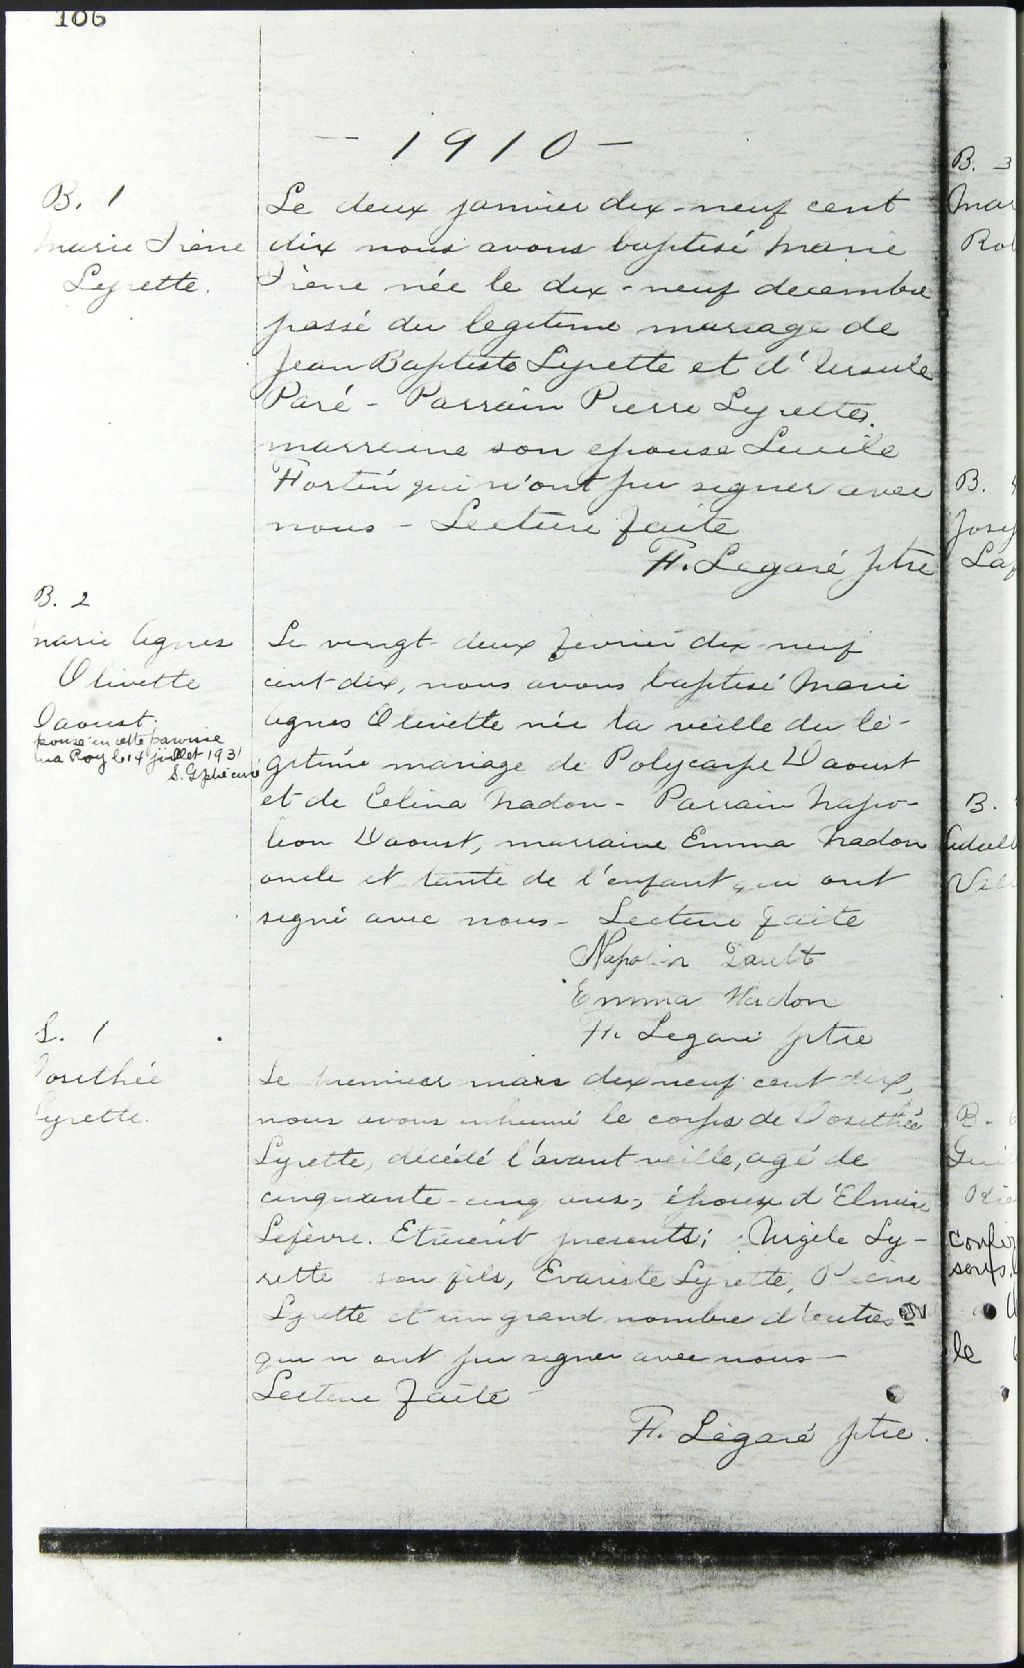 106
- 1910 -
B. 1
Marie Irène
Lyrette.
Le deux janvier dix-neuf cent
dix nous avons baptisé Marie
Irène née le dix-neuf decembre
passé du legitime mariage de
Jean Baptiste Lyrette et d'Ursule
Paré - Parrain Pierre Lyrette,
marraine son epouse Lucile
Fortin qui n'ont pu signer avec
nous - Lecture faite
F. Legaré ptre
B. 2
marie Agnes
Olivette
Daoust.
pouse en cette paroisse
Roy le 14 juillet 193
curé
Le vingt-deux fevrier dix-neuf
cent-dix, nous avons baptisé Marie
Agnes Olivette née la veille du lé-
gitime mariage de Polycarpe Daoust
et de Celina Nadon - Parrain Napo-
leon Daoust, marraine Emma Nadon
oncle et tante de l'enfant qui ont
signé avec nous - Lecture faite
Napoléon Dault
Emma Nadon
F. Legaré ptre
S. 1
Dosithée
Lyrette.
Le premier mars dix neuf cent dix,
nous avons inhumé le corps de Dosithée
Lyrette, décédé l'avant veille, agé de
cinquante-cinq ans, époux d'Elmire
Lefèvre. Etaient presents; Virgile Ly-
rette son fils, Evariste Lyrette, Pierre
Lyrette et un grand nombre d'autres
qui n'ont pu signer avec nous -
Lecture faite -
F. Légaré ptre.
B. 3
Mar
Rob
B. 4
Jose
La
B.
Adel
B. 6
le